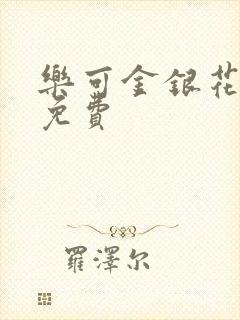 樂可金銀花
免費
羅澤尔